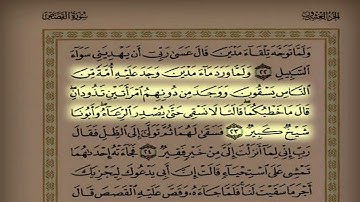 الجزء العشرون
سورة القصص
وَلَمَّا تَوَجَّهَ تِلْقَاءَ مَدْيَنَ قَالَ عَسَىٰ رَبِّي أَن يَهْدِيَنِي سَوَاءَ
السَّبِيلِ ٢٢ وَلَمَّا وَرَدَ مَاءَ مَدْيَنَ وَجَدَ عَلَيْهِ أُمَّةً مِّنَ
النَّاسِ يَسْقُونَ وَوَجَدَ مِن دُونِهِمُ امْرَأَتَيْنِ تَذُودَانِ
قَالَ مَا خَطْبُكُمَا قَالَتَا لَا نَسْقِي حَتَّىٰ يُصْدِرَ الرِّعَاءُ وَأَبُونَا
شَيْخٌ كَبِيرٌ ٢٣ فَسَقَىٰ لَهُمَا ثُمَّ تَوَلَّىٰ إِلَى الظِّلِّ فَقَالَ
رَبِّ إِنِّي لِمَا أَنزَلْتَ إِلَيَّ مِنْ خَيْرٍ فَقِيرٌ ٢٤ فَجَاءَتْهُ إِحْدَاهُمَا
تَمْشِي عَلَى اسْتِحْيَاءٍ قَالَتْ إِنَّ أَبِي يَدْعُوكَ لِيَجْزِيَكَ
أَجْرَ مَا سَقَيْتَ لَنَا فَلَمَّا جَاءَهُ وَقَصَّ عَلَيْهِ الْقَصَصَ قَالَ